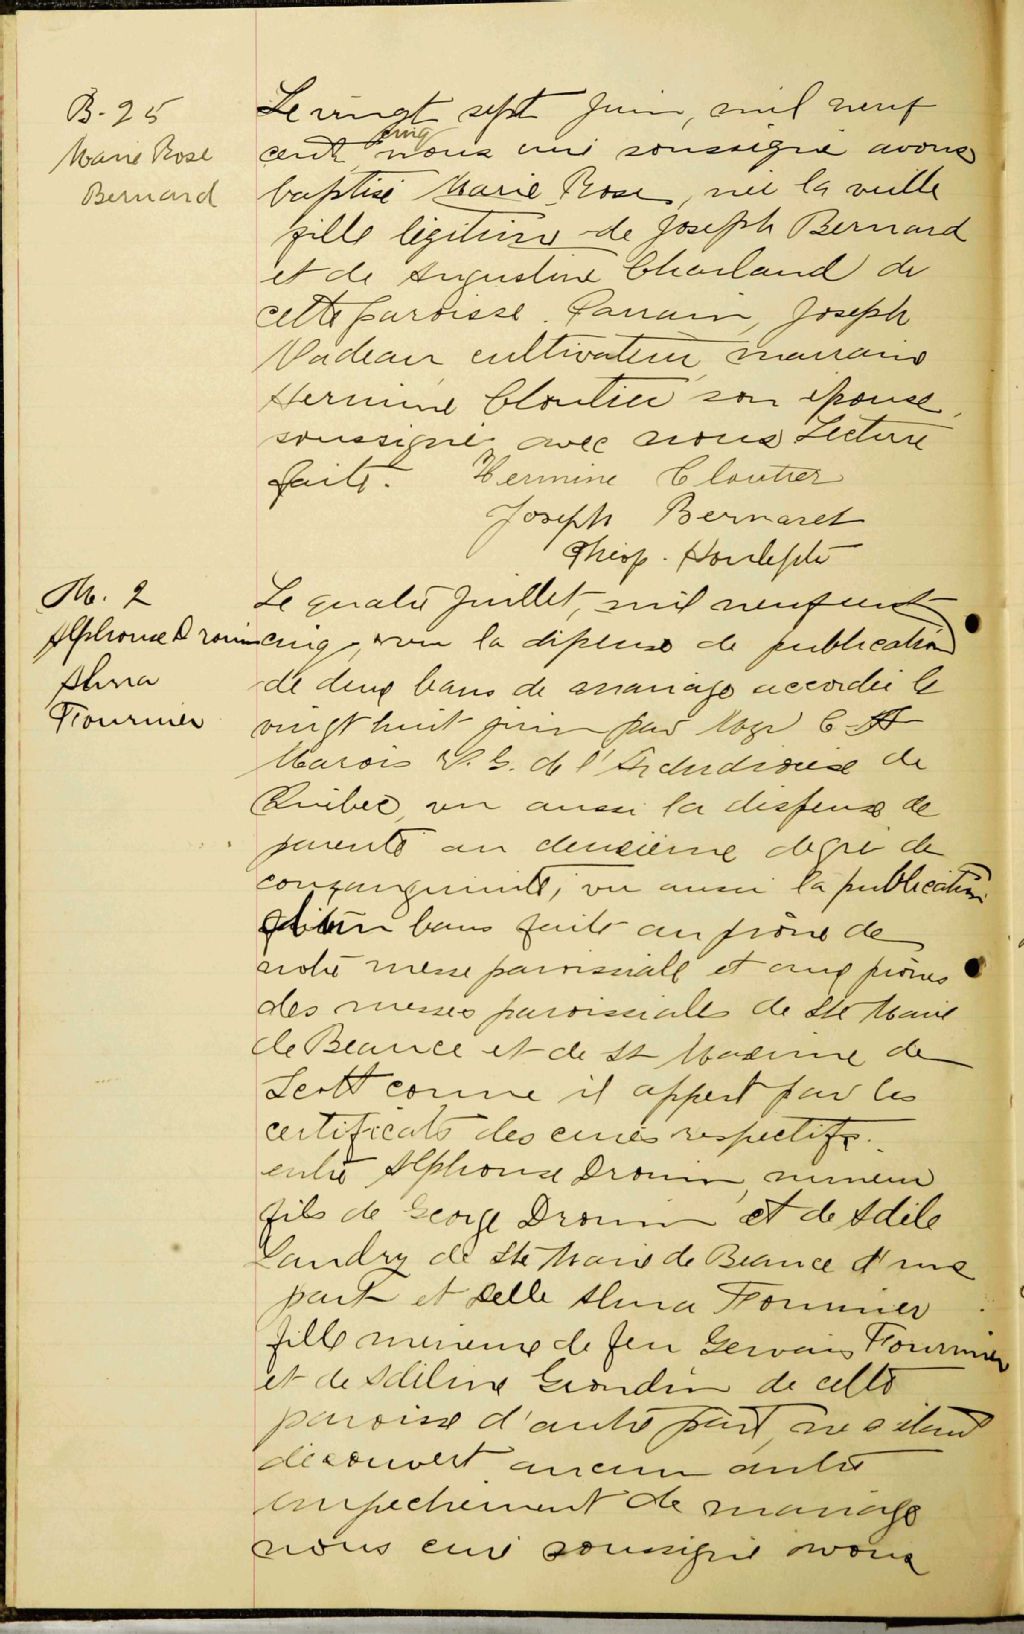 B-25
Marie Rose
Bernard
Le vingt sept Juin, mil neuf
cent cinq nous curé soussigné avons
baptisé Marie Rose, née la veille
fille légitime de Joseph Bernard
et de Augustine Charland de
cette paroisse. Parrain, Joseph
Nadeau cultivateur, marraine
Hermine Cloutier son épouse,
soussignés avec nous Lecture
faite. Hermine Cloutier
Joseph Bernard
Théop. Houde ptre
M. 2
Alphonse Drouin
Alma
Fournier
Le quatre Juillet, mil neuf cent
cinq, vu la dipense de publication
de deux bans de mariage accordée le
vingt huit juin par Mgr C
Marois V. G. de l'Archidiocèse de
Québec, vu aussi la dispense de
parenté au deuxième degré de
consanguinité, vu aussi la publication
d'un bans faite au prône de
notre messe paroissiale et aux prônes
des messes paroissiales de Ste Marie
de Beauce et de St Maxime de
Scott comme il appert par les
certificats des curés respectifs.
entre Alphonse Drouin, mineur
fils de George Drouin et de Adèle
Landry de Ste Marie de Beauce d'une
part et Delle Alma Fournier
fille mineure de feu Gervais Fournier
et de Adéline Grondin de cette
paroisse d'autre part, ne s'étant
découvert aucun autre
empêchement de mariage
nous curé soussigné avons